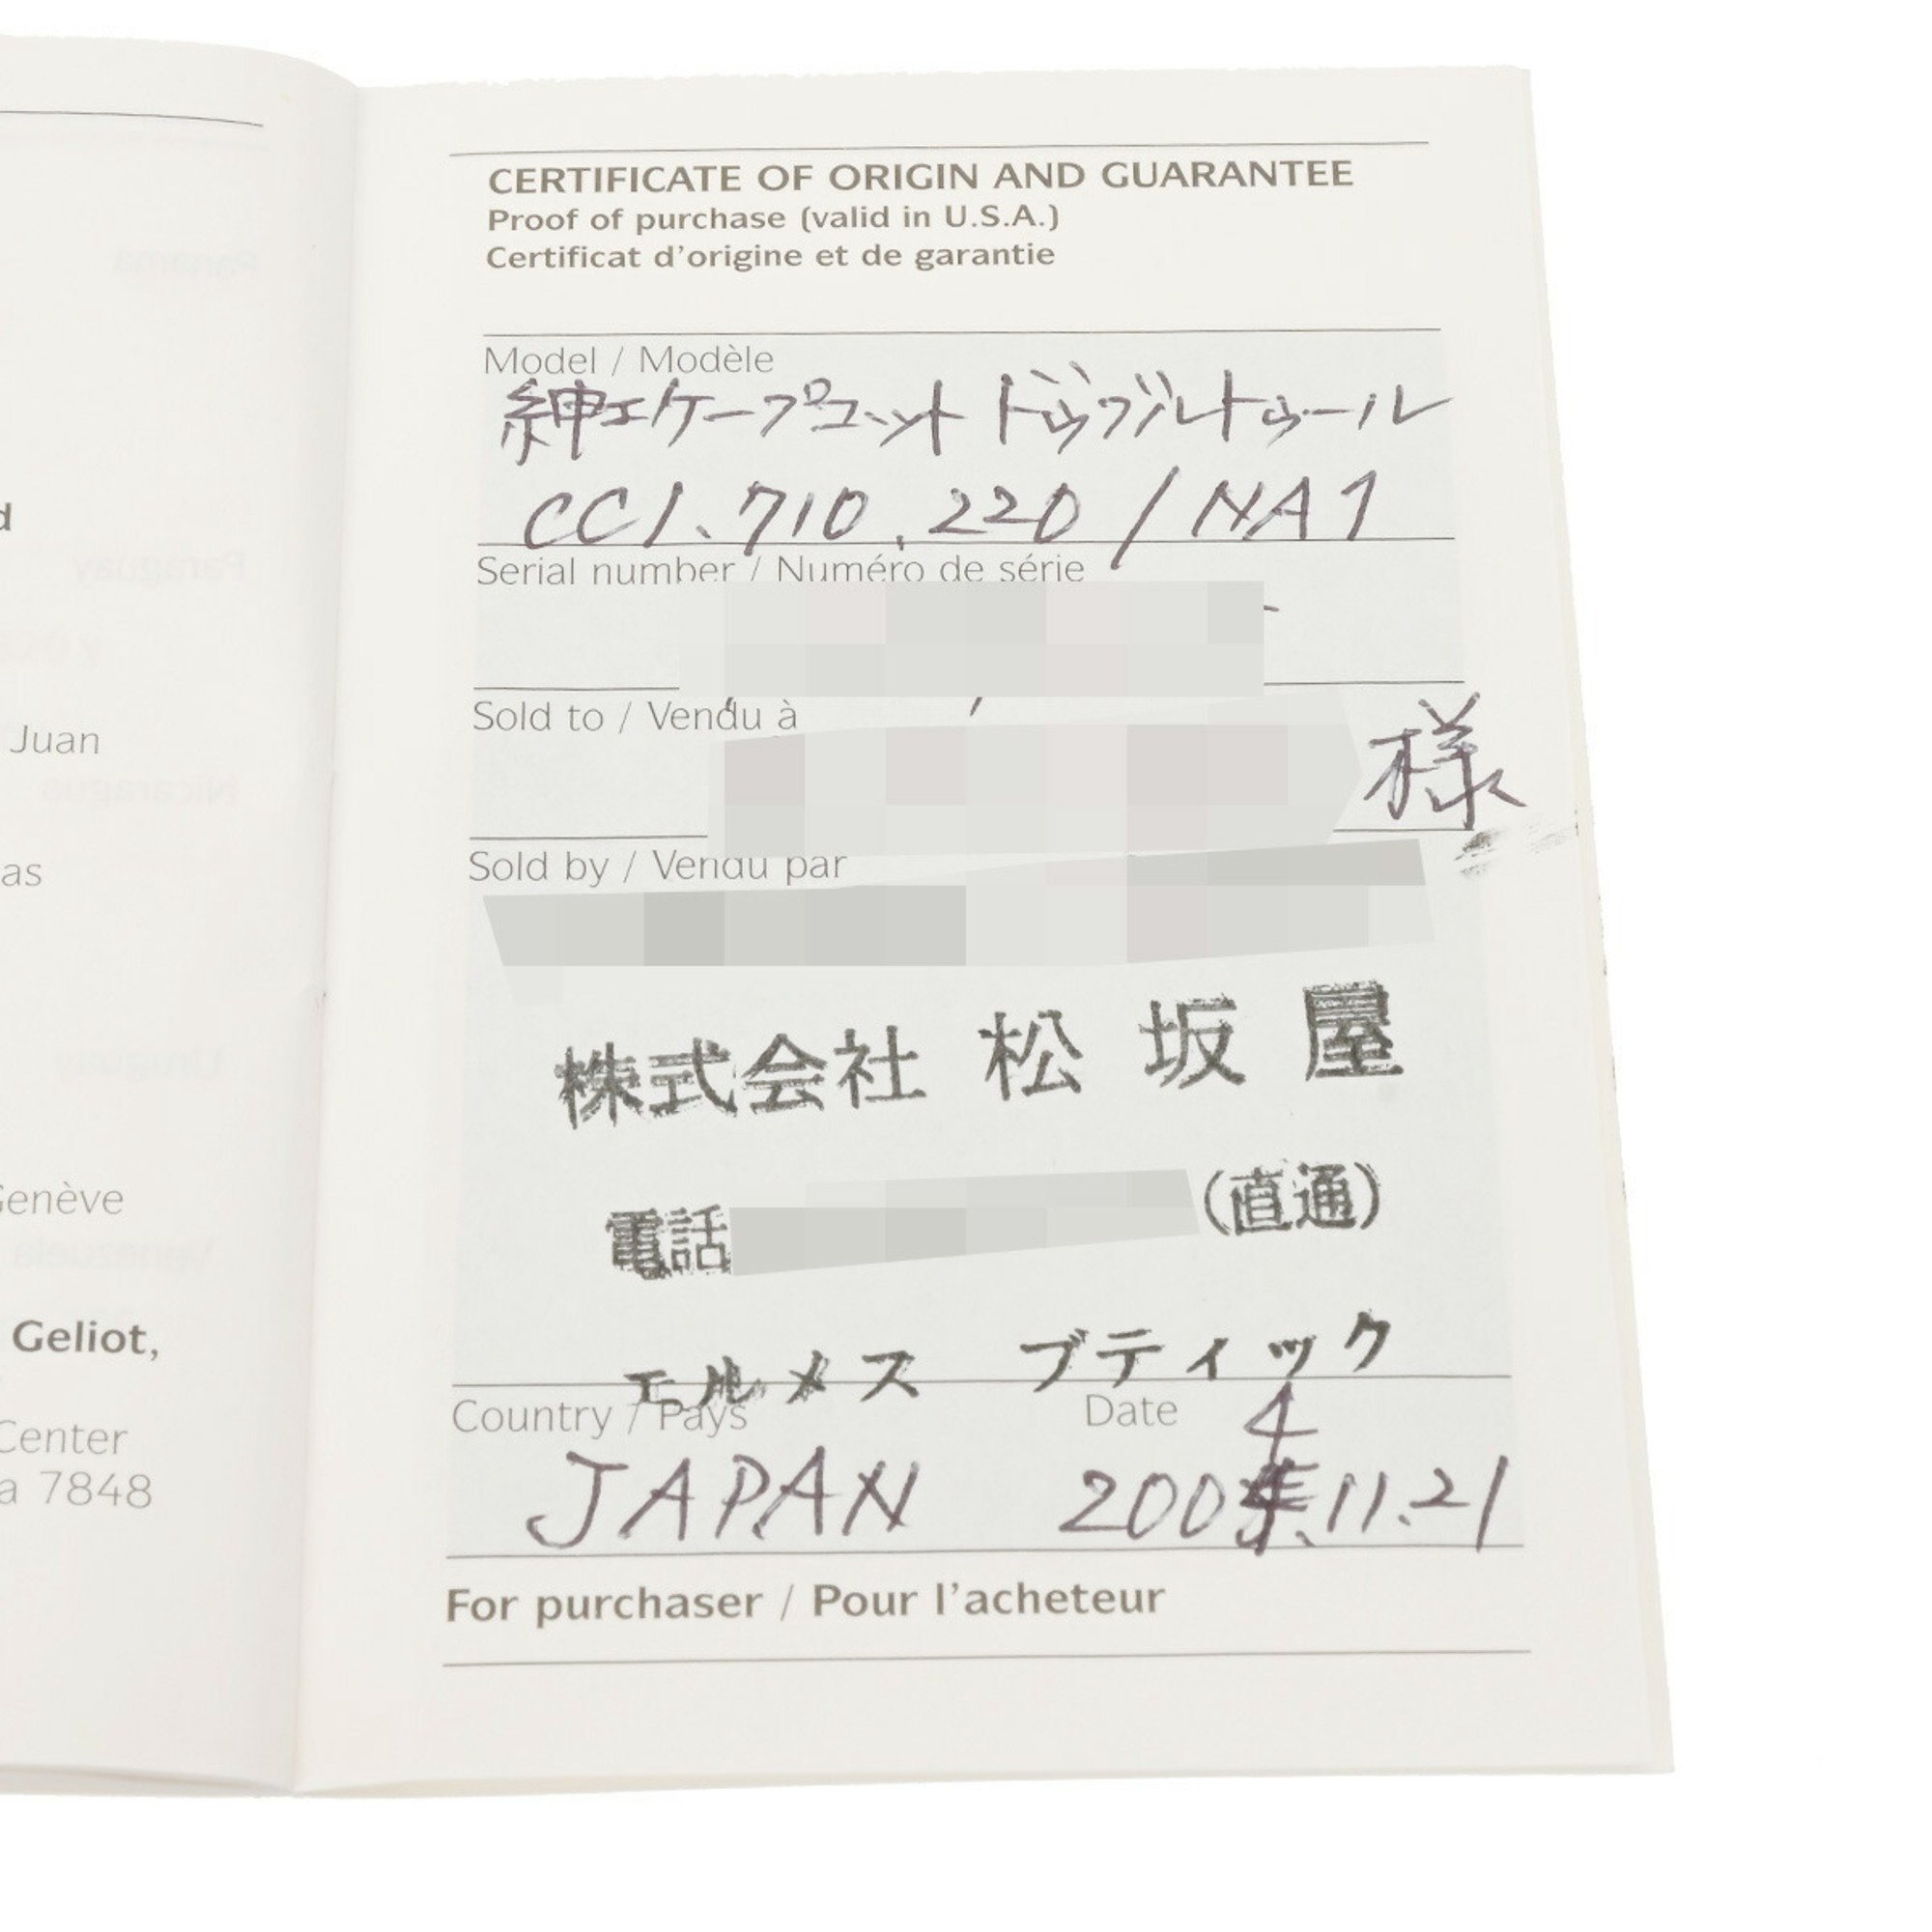 CERTIFICATE OF ORIGIN AND GUARANTEE
Proof of purchase (valid in U.S.A.)
Certificat d'origine et de garantie
Model / Modèle
紳エケープコット ドゥブルトゥール
CC1.710.220/NA1
Serial number / Numéro de série
Sold to / Vendu à
様
Sold by / Vendu par
株式会社 松坂屋
電話 (直通)
エルメス ブティック
Country / Pays
Date
JAPAN
4
200 .11.21
For purchaser / Pour l'acheteur
d
Juan
as
Genève
Geliot,
Center
a 7848